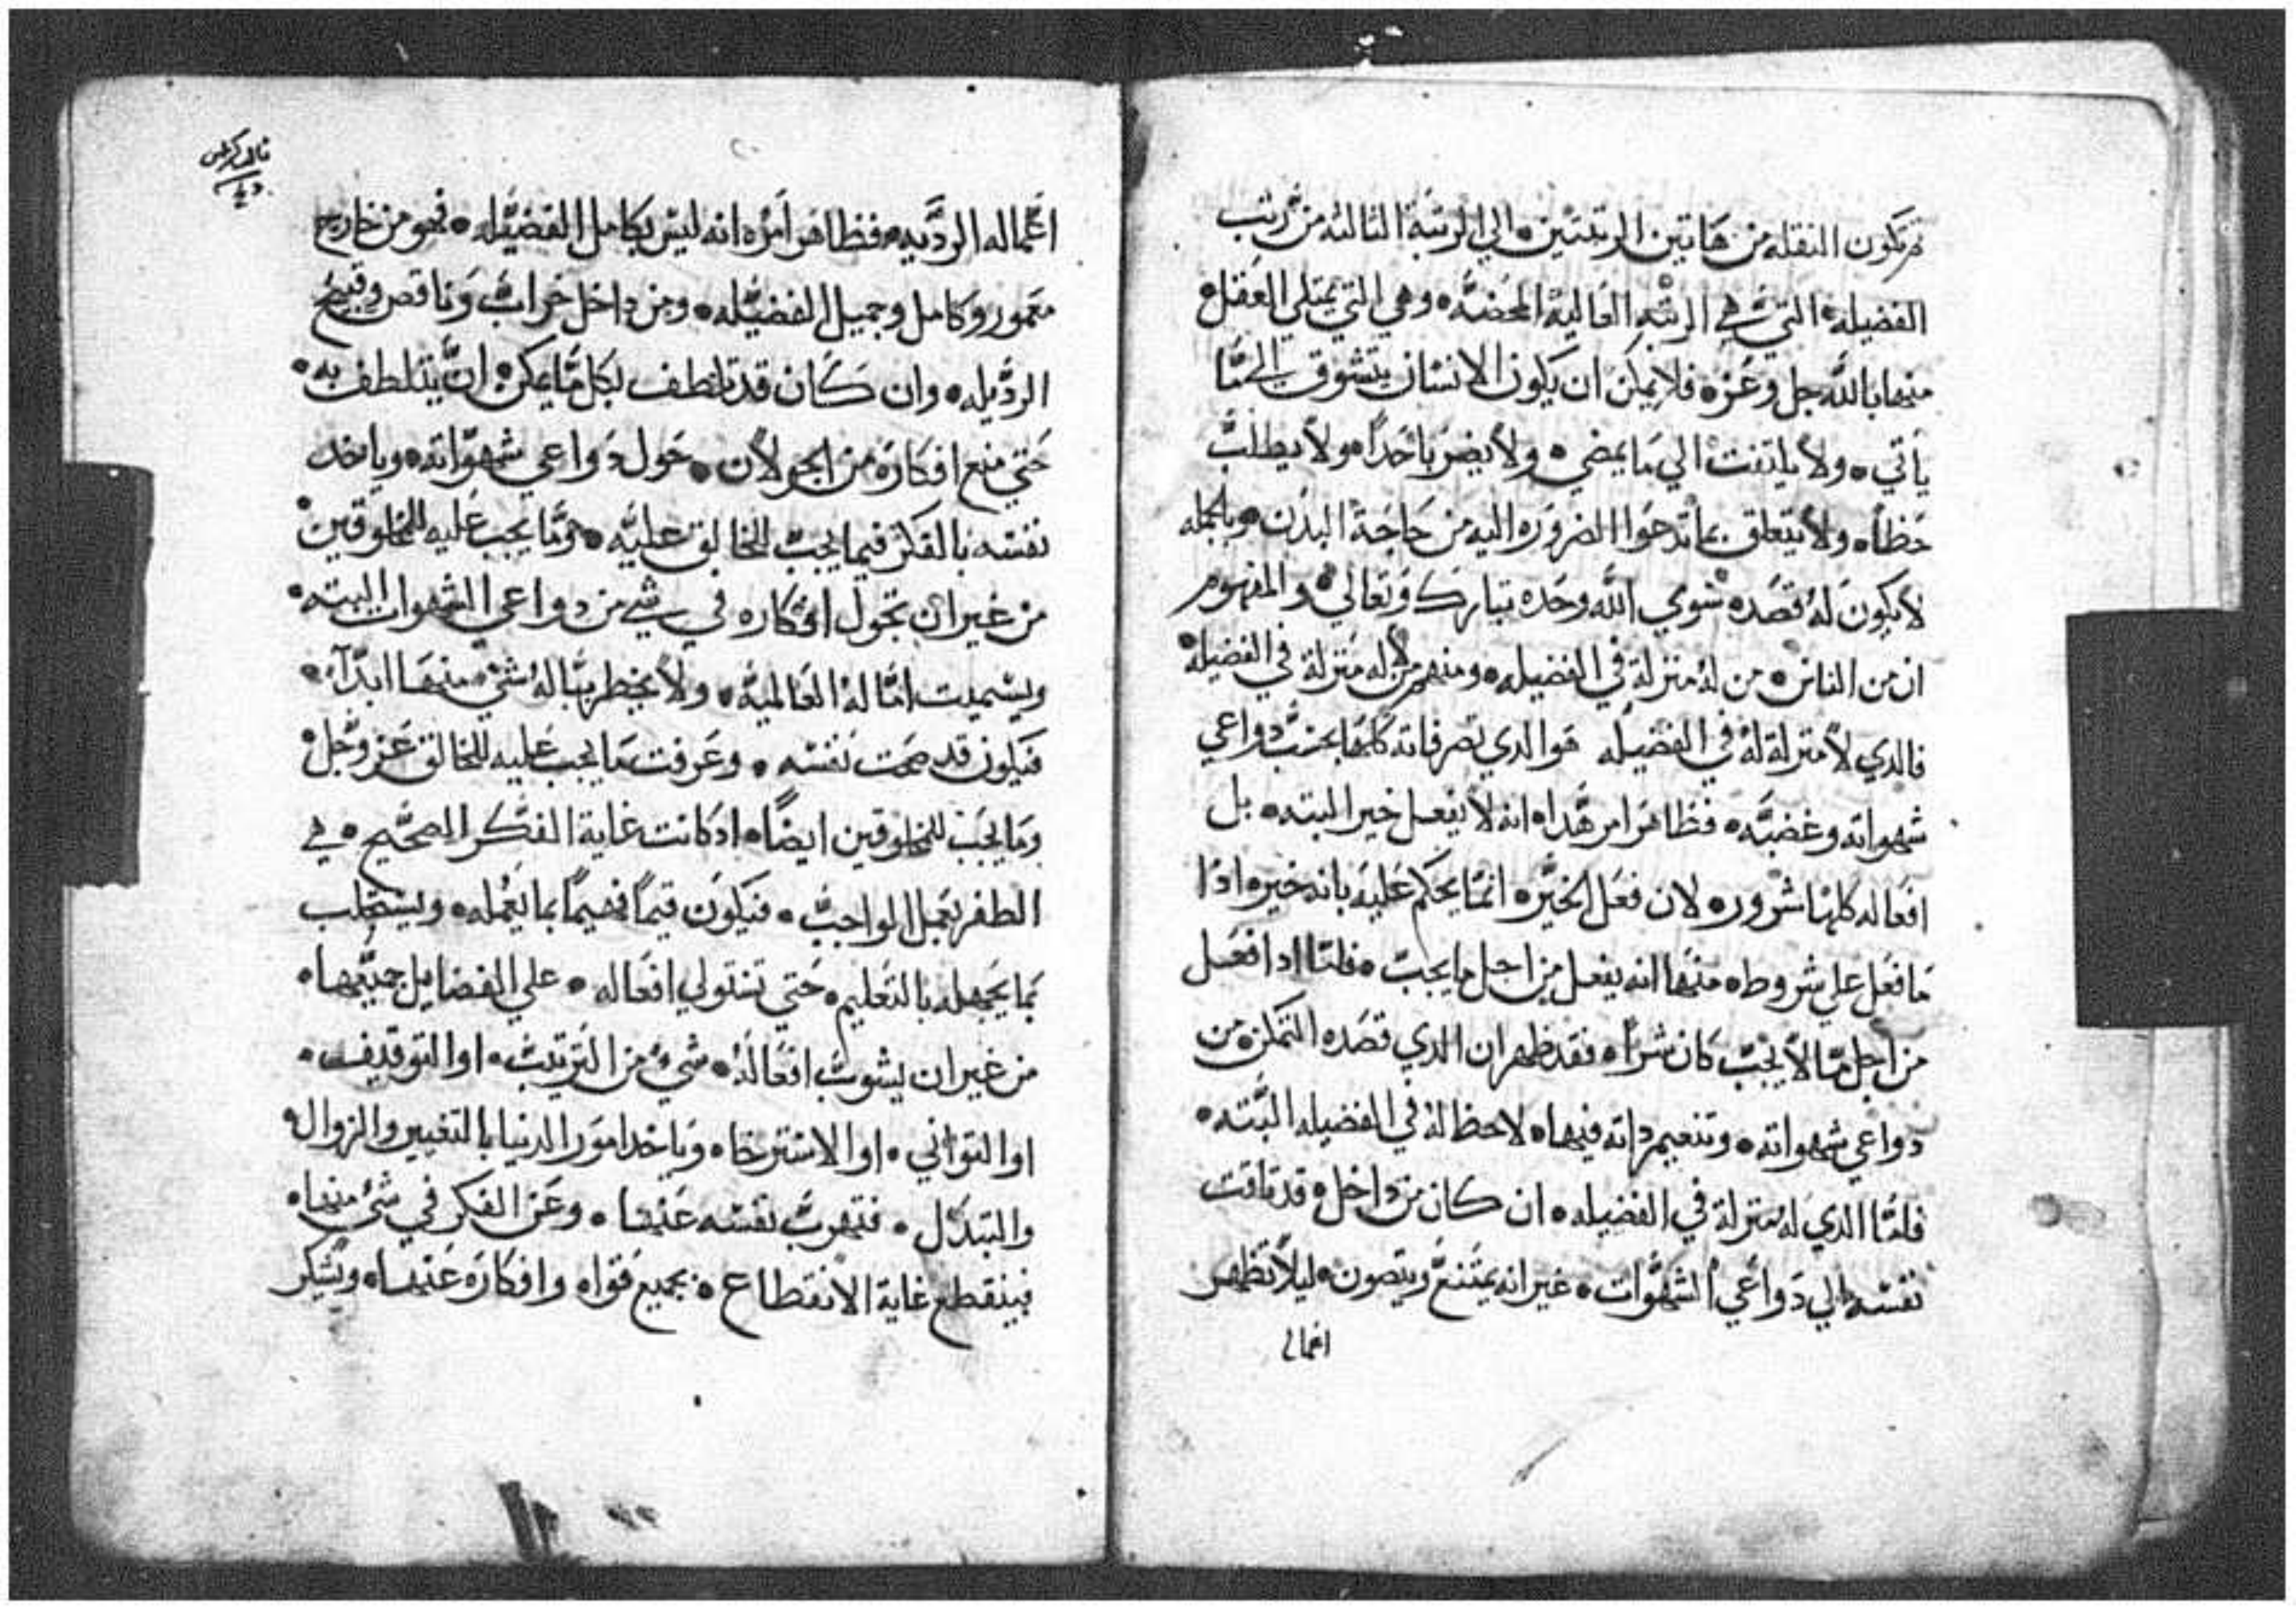 ثم تكون النقله من هاتين الرتبتين • الي الرتبة الثالثه من رتب
الفضيله • التي هي الرتبه العالية المحضه • وهي التي يمتلي العقل
منها بالله جل وعز • فلا يمكن ان يكون الانسان يتشوق الي ما
ياتي • ولا يلتفت الي ما يمضي • ولا يضر باحدا • ولا يطلب
حظا • ولا يتعلق بما تدعوا الضروره اليه من حاجة البدن • وبالجمله
لا يكون له قصده سوي الله وحده تبارك وتعالي • والمفهوم
ان من الناس • من له منزلة في الفضيله • ومنهم من لا له منزلة في الفضيله
فالدي لا منزلة له في الفضيله هو الدي تصرفاته كلها بحسب دواعي
شهواته وغضبه • فظاهر امر هدا • انه لا يفعل خير البته • بل
افعاله كلها شرور • لان فعل الخير • انما يحكم عليه بانه خير • ادا
ما فعل علي شروط • منها انه يفعل من اجل ما يجب • فلما ادا فعل
من اجل ما لا يجب كان شرا • فقد ظهر ان الدي قصده التمكن من
دواعي شهواته • وتنعيم داته فيها • لا حظ له في الفضيله البته •
فلما الدي له منزلة في الفضيله • ان كان من داخل • قد تاقت
نفسه الي دواعي الشهوات • غير انه يمتنع ويتصون • ليلا تظهر
اعماله
اعماله الرديه • فظاهر امره انه ليس بكامل الفضيله • فهو من خارج
معمور وكامل وجميل الفضيله • ومن داخل خراب وناقص وقبيح
الرديله • وان كان قد تلطف بكل ما يمكن • ان يتلطف به •
حتي منع افكاره من الجولان • حول دواعي شهواته • وياخد
نفسه بالفكر فيما يجب للخالق عليه • وما يجب عليه للمخلوقين •
من غير ان تجول افكاره في شي من دواعي الشهوات البته •
ويميت اماله العالمية • ولا يخطر بباله شي منها ابدا •
فيكون قد صحت نفسه • وعرفت ما يجب عليه للخالق عز وجل •
وما يجب للمخلوقين ايضا • اد كانت غاية الفكر الصحيح • هي
الظفر بعمل الواجب • فيكون قيما فهيما بما يعمله • ويستجلب
بما يجهله بالتعليم • حتي تستولي افعاله • علي الفضايل جميعها •
من غير ان يشوب افعاله • شي من التريث • او التوقيف •
او التواني • او الاسترخا • وياخد امور الدنيا بالتغيير والزوال •
والتبدل • فتهرب نفسه عنها • وعن الفكر في شي منها •
فينقطع غاية الانقطاع • بجميع قواه وافكاره عنها •